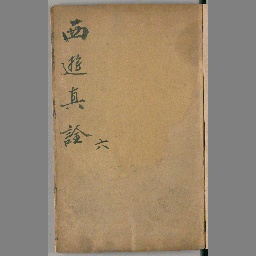 西遊真詮
六